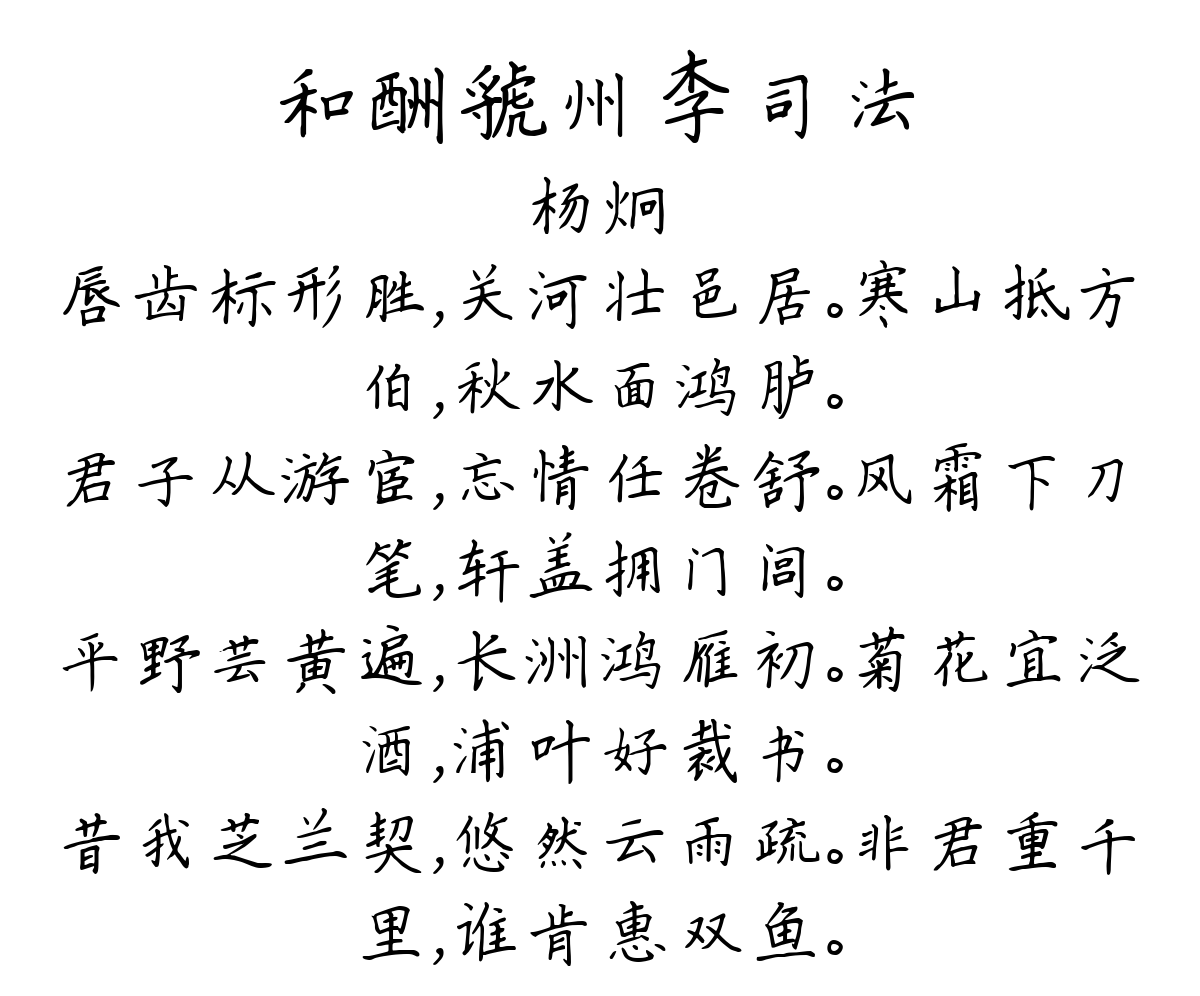 和酬虢州李司法
杨炯
唇齿标形胜,关河壮邑居。寒山抵方
伯,秋水面鸿胪。
君子从游宦,忘情任卷舒。风霜下刀
笔,轩盖拥门闾。
平野芸黄遍,长洲鸿雁初。菊花宜泛
酒,浦叶好裁书。
昔我芝兰契,悠然云雨疏。非君重千
里,谁肯惠双鱼。